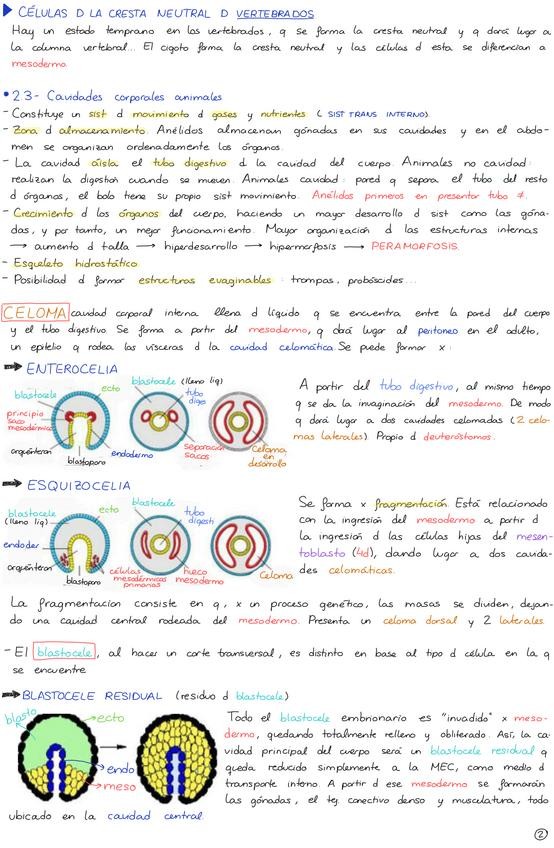 ▶ CÉLULAS D LA CRESTA NEUTRAL D VERTEBRADOS
Hay un estado temprano en los vertebrados, q se forma la cresta neutral y q dará lugar a
la columna vertebral... El cigoto forma la cresta neutral y las células d esta se diferencian a
mesodermo.
• 2.3- Cavidades corporales animales
- Constituye un sist d movimiento d gases y nutrientes (SIST TRANS INTERNO).
- Zona d almacenamiento. Anélidos almacenan gónadas en sus cavidades y en el abdo-
men se organizan ordenadamente los órganos.
- La cavidad aísla el tubo digestivo d la cavidad del cuerpo. Animales no cavidad:
realizan la digestión cuando se mueven. Animales cavidad: pared q separa el tubo del resto
d órganos, el bolo tiene su propio sist movimiento. Anélidos primeros en presentar tubo ≠.
- Crecimiento d los órganos del cuerpo, haciendo un mayor desarrollo d sist como las góna-
das, y por tanto, un mejor funcionamiento. Mayor organización d las estructuras internas
→ aumento d talla → hiperdesarrollo → hipermorfosis → PERAMORFOSIS.
- Esqueleto hidrostático.
- Posibilidad d formar estructuras evaginables: trompas, probóscides...
CELOMA cavidad corporal interna llena d líquido q se encuentra entre la pared del cuerpo
y el tubo digestivo. Se forma a partir del mesodermo, q dará lugar al peritoneo en el adulto,
un epitelio q rodea las vísceras d la cavidad celomática. Se puede formar x:
➡ ENTEROCELIA
blastocele
ecto
blastocele (lleno liq)
tubo
diges
principio
saco
mesodérmico
arquénteron
blastoporo
endodermo
separación
sacos
Celoma
en
desarrollo
A partir del tubo digestivo, al mismo tiempo
q se da la invaginación del mesodermo. De modo
q dará lugar a dos cavidades celomadas (2 celo-
mas laterales). Propio d deuteróstomos.
➡ ESQUIZOCELIA
blastocele
(lleno liq)
ecto
blastocele
tubo
digesti
endoder
arquénteron
blastoporo
células
mesodérmicas
primarias
hueco
mesodermo
Celoma
Se forma x fragmentación. Está relacionado
con la ingresión del mesodermo a partir d
la ingresión d las células hijas del mesen-
toblasto (4d), dando lugar a dos cavida-
des celomáticas.
La fragmentación consiste en q, x un proceso genético, las masas se dividen, dejan-
do una cavidad central rodeada del mesodermo. Presenta un celoma dorsal y 2 laterales.
- El blastocele, al hacer un corte transversal, es distinto en base al tipo d célula en la q
se encuentre
➡ BLASTOCELE RESIDUAL (residuo d blastocele)
blasto
ecto
endo
meso
Todo el blastocele embrionario es "invadido" x meso-
dermo, quedando totalmente relleno y obliterado. Así, la ca-
vidad principal del cuerpo será un blastocele residual q
queda reducido simplemente a la MEC, como medio d
transporte interno. A partir d ese mesodermo se formarán
las gónadas, el tej. conectivo denso y musculatura, todo
ubicado en la cavidad central.
2